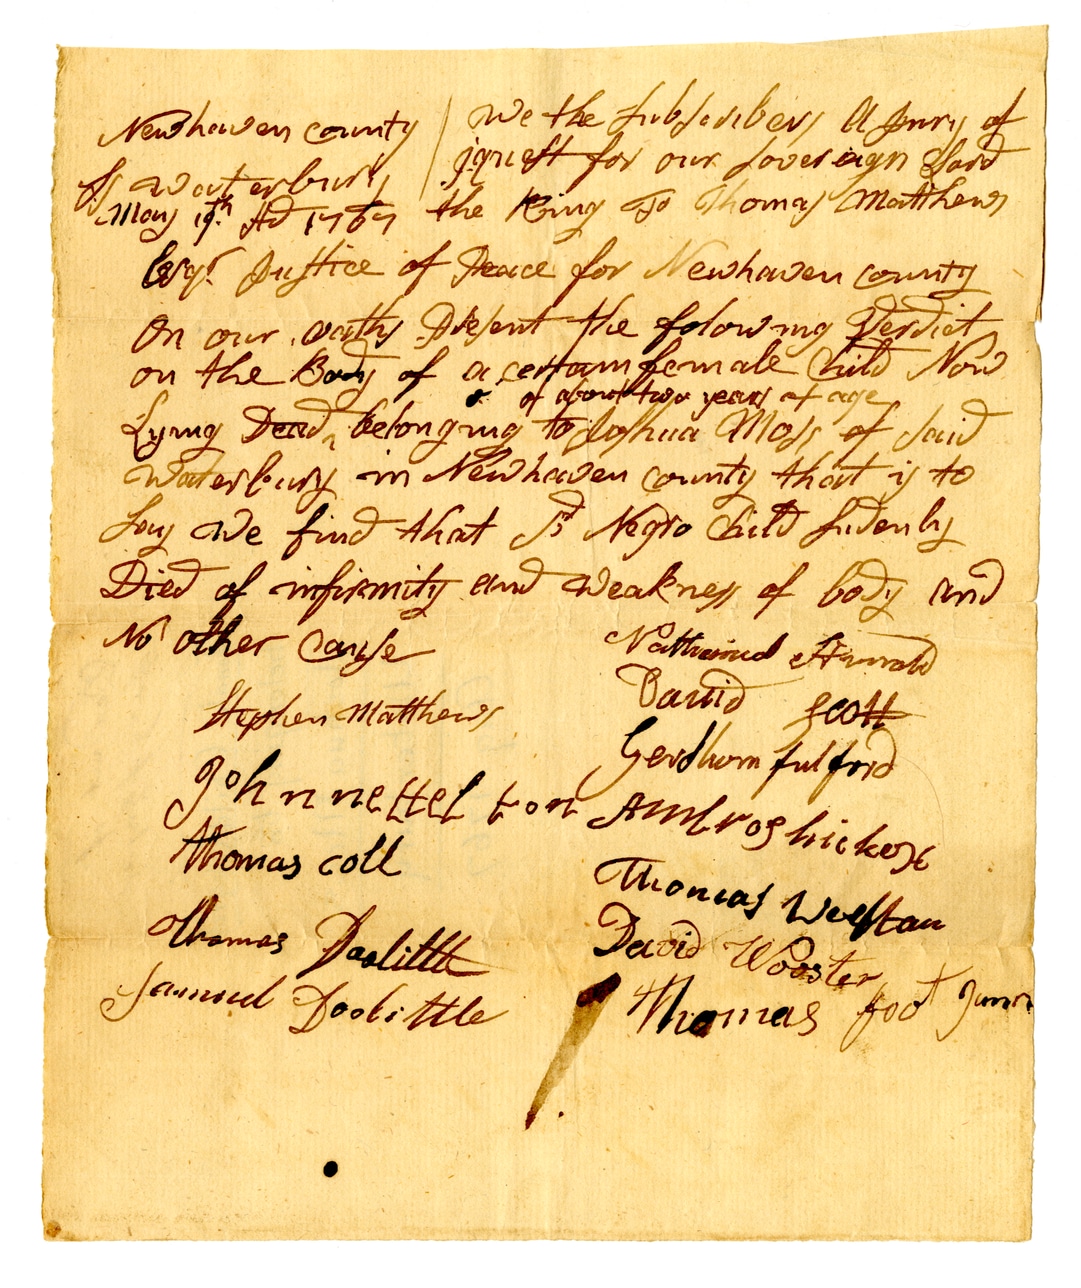 Newhaven county
Ss Waterbury
May 19th AD 1767
We the Subscribers A Jury of
jquest for our Sovereign Lord
the King To Thomas Matthews
Esqr. Justice of Peace for Newhaven county
On our oaths Present the folowing Verdict
on the Body of a certain female Child Now
of about two years of age
Lying Dead ^ belonging to Joshua Moss of said
Waterbury in Newhaven county that is to
Say we find that sd Negro Child sudenly
Died of infirmity and weakness of body and
No other Cause
Stephen Matthews
John nettelton
Thomas Coll
Thomas Doolittle
Samuel Doolittle
David Scott
Gershom fulford
Ambros hickox
Thomas Welton
David Wooster
Thomas foot Junor